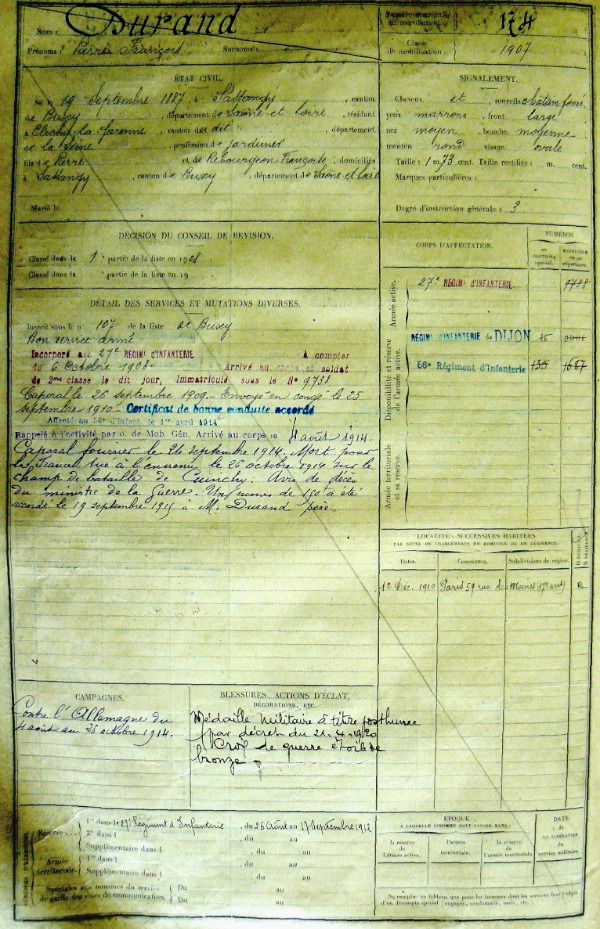 Nom : Durand
Prénoms : Pierre François Surnoms :
Numéro matricule du recrutement : 174
Classe de mobilisation : 1907
ÉTAT CIVIL.
Né le 19 Septembre 1887, à Sassangy, canton
de Buxy, département de Saône et Loire, résidant
à Clichy la Garenne, canton des dit, département
de la Seine, profession de Jardinier
fils de Pierre et de Rebourgeon Françoise, domiciliés
à Sassangy, canton de Buxy, département de Saône et Loire
Marié le
SIGNALEMENT.
Cheveux et sourcils châtain foncé
yeux marrons, front large
nez moyen, bouche moyenne
menton rond visage ovale
Taille : 1 m. 73 cent. Taille rectifiée : m. cent.
Marques particulières :
Degré d'instruction générale : 3
DÉCISION DU CONSEIL DE RÉVISION.
Classé dans la 1e partie de la liste en 1908
Classé dans la partie de la liste en 19
DÉTAIL DES SERVICES ET MUTATIONS DIVERSES.
Inscrit sous le n° 107 de la liste de Buxy
Bon service armé
Incorporé au 27e RÉGIMt D'INFANTERIE à compter
du 6 Octobre 1908. Arrivé au corps et soldat
de 2me classe le dit jour, Immatriculé sous le No 9738
Caporal le 26 septembre 1909. Envoyé en congé le 25
septembre 1910. Certificat de bonne conduite accordé
Affecté au 56e d'Infant. le 1er avril 1914
Rappelé à l'activité par o. de Mob. Gén. Arrivé au corps le 4 août 1914.
Caporal fourrier le 26 septembre 1914. Mort pour
la France tué à l'ennemi le 26 octobre 1914 sur le
champ de bataille de Avis de décès
du ministre de la Guerre. Un secours de 150f a été
accordé le 19 septembre 1915 à M. Durand père.
CORPS D'AFFECTATION.
NUMÉROS
Armée active.
27e RÉGIMt D'INFANTERIE 9738
Disponibilité et réserve de l'armée active.
RÉGIMt D'INFANTERIE de DIJON
56e Régiment d'Infanterie
Armée territoriale et sa réserve.
LOCALITÉS SUCCESSIVES HABITÉES
PAR SUITE DE CHANGEMENTS DE DOMICILE OU DE RÉSIDENCE.
Dates. Communes. Subdivisions de région.
12 Déc. 1910 Paris 59 rue des Moines (17e arrt) R
CAMPAGNES.
Contre l'Allemagne du
4 août au 26 octobre 1914.
BLESSURES, ACTIONS D'ÉCLAT,
DÉCORATIONS, ETC.
Médaille Militaire à titre posthume
par décret du 21.4.1920
Croix de guerre étoile de
bronze
Réserve 1re dans le 27e Régiment d'Infanterie, du 26 Août au 17 Septembre 1912
2e dans l , du au
Supplémentaire dans l , du au
Armée territoriale 1re dans l , du au
Supplémentaire dans l , du au
Spéciales aux hommes du service de garde des voies de communication. Du au
Du au
ÉPOQUE
À LAQUELLE L'HOMME DOIT PASSER DANS :
la réserve de l'armée active. l'armée territoriale. la réserve de l'armée territoriale.
DATE de LA LIBÉRATION du service militaire.